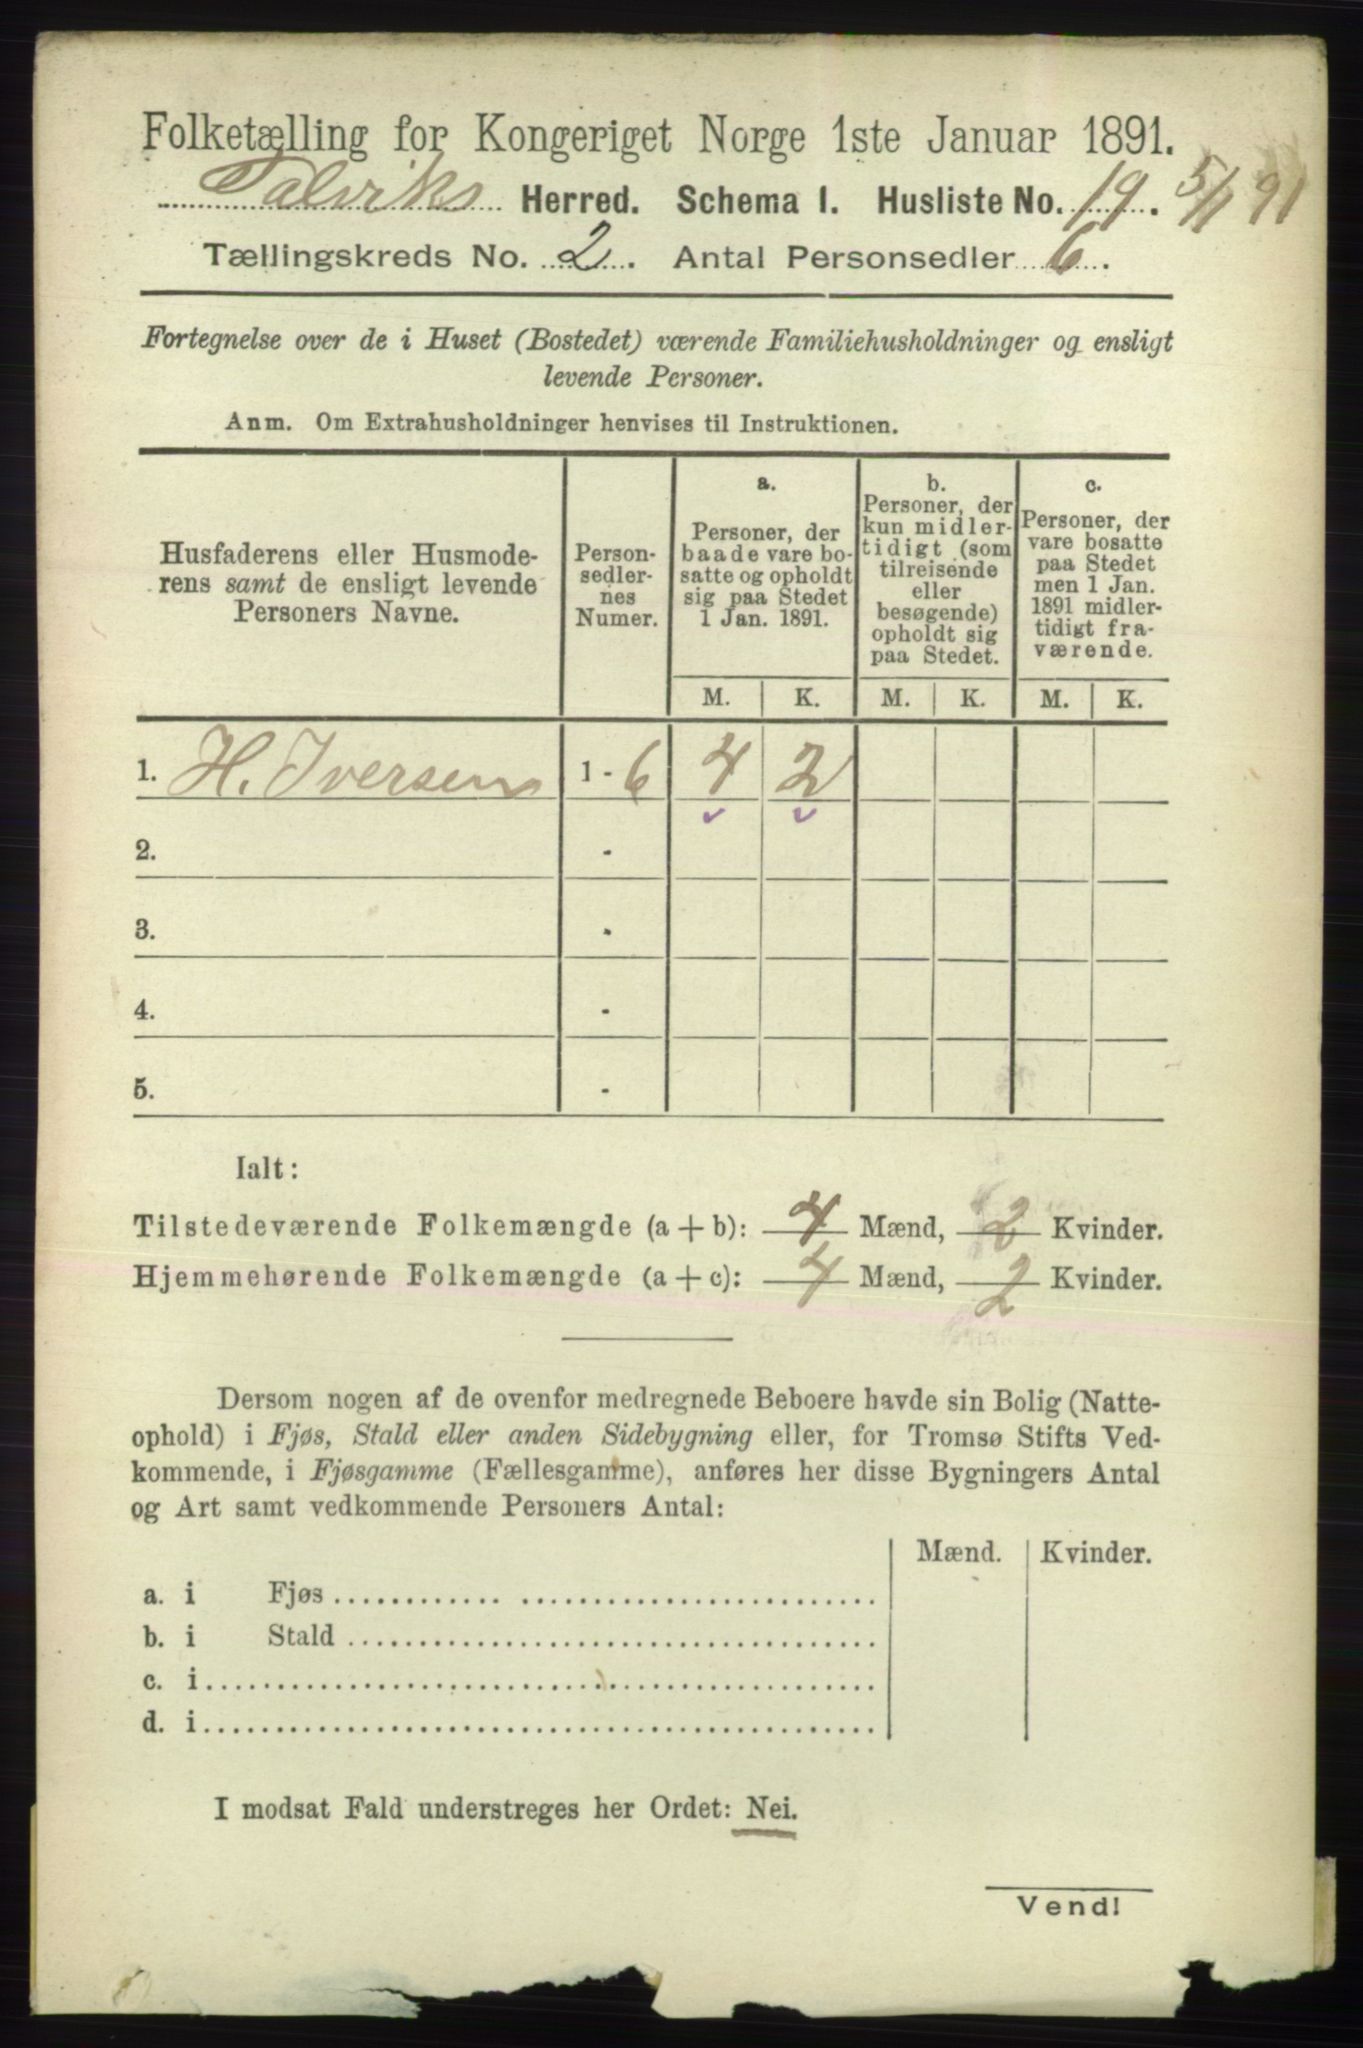 Folketælling for Kongeriget Norge 1ste Januar 1891.
Talviks Herred. Schema 1. Husliste No. 19. 5/1 91
Tællingskreds No. 2. Antal Personsedler 6.
Fortegnelse over de i Huset (Bostedet) værende Familiehusholdninger og ensligt
levende Personer.
Anm. Om Extrahusholdninger henvises til Instruktionen.
Husfaderens eller Husmode-
rens samt de ensligt levende
Personers Navne.
Person-
sedler-
nes
Numer.
a.
Personer, der
baade vare bo-
satte og opholdt
sig paa Stedet
1 Jan. 1891.
b.
Personer, der
kun midler-
tidigt (som
tilreisende
eller
besøgende)
opholdt sig
paa Stedet.
c.
Personer, der
vare bosatte
paa Stedet
men 1 Jan.
1891 midler-
tidigt fra-
værende.
M. K. M. K. M. K.
1. H. Iversen 1 - 6 4 2
2. -
3. -
4. -
5. -
Ialt:
Tilstedeværende Folkemængde (a + b): 4 Mænd, 2 Kvinder.
Hjemmehørende Folkemængde (a + c): 4 Mænd, 2 Kvinder.
Dersom nogen af de ovenfor medregnede Beboere havde sin Bolig (Natte-
ophold) i Fjøs, Stald eller anden Sidebygning eller, for Tromsø Stifts Ved-
kommende, i Fjøsgamme (Fællesgamme), anføres her disse Bygningers Antal
og Art samt vedkommende Personers Antal:
Mænd. Kvinder.
a. i Fjøs
b. i Stald
c. i
d. i
I modsat Fald understreges her Ordet: Nei.
Vend!